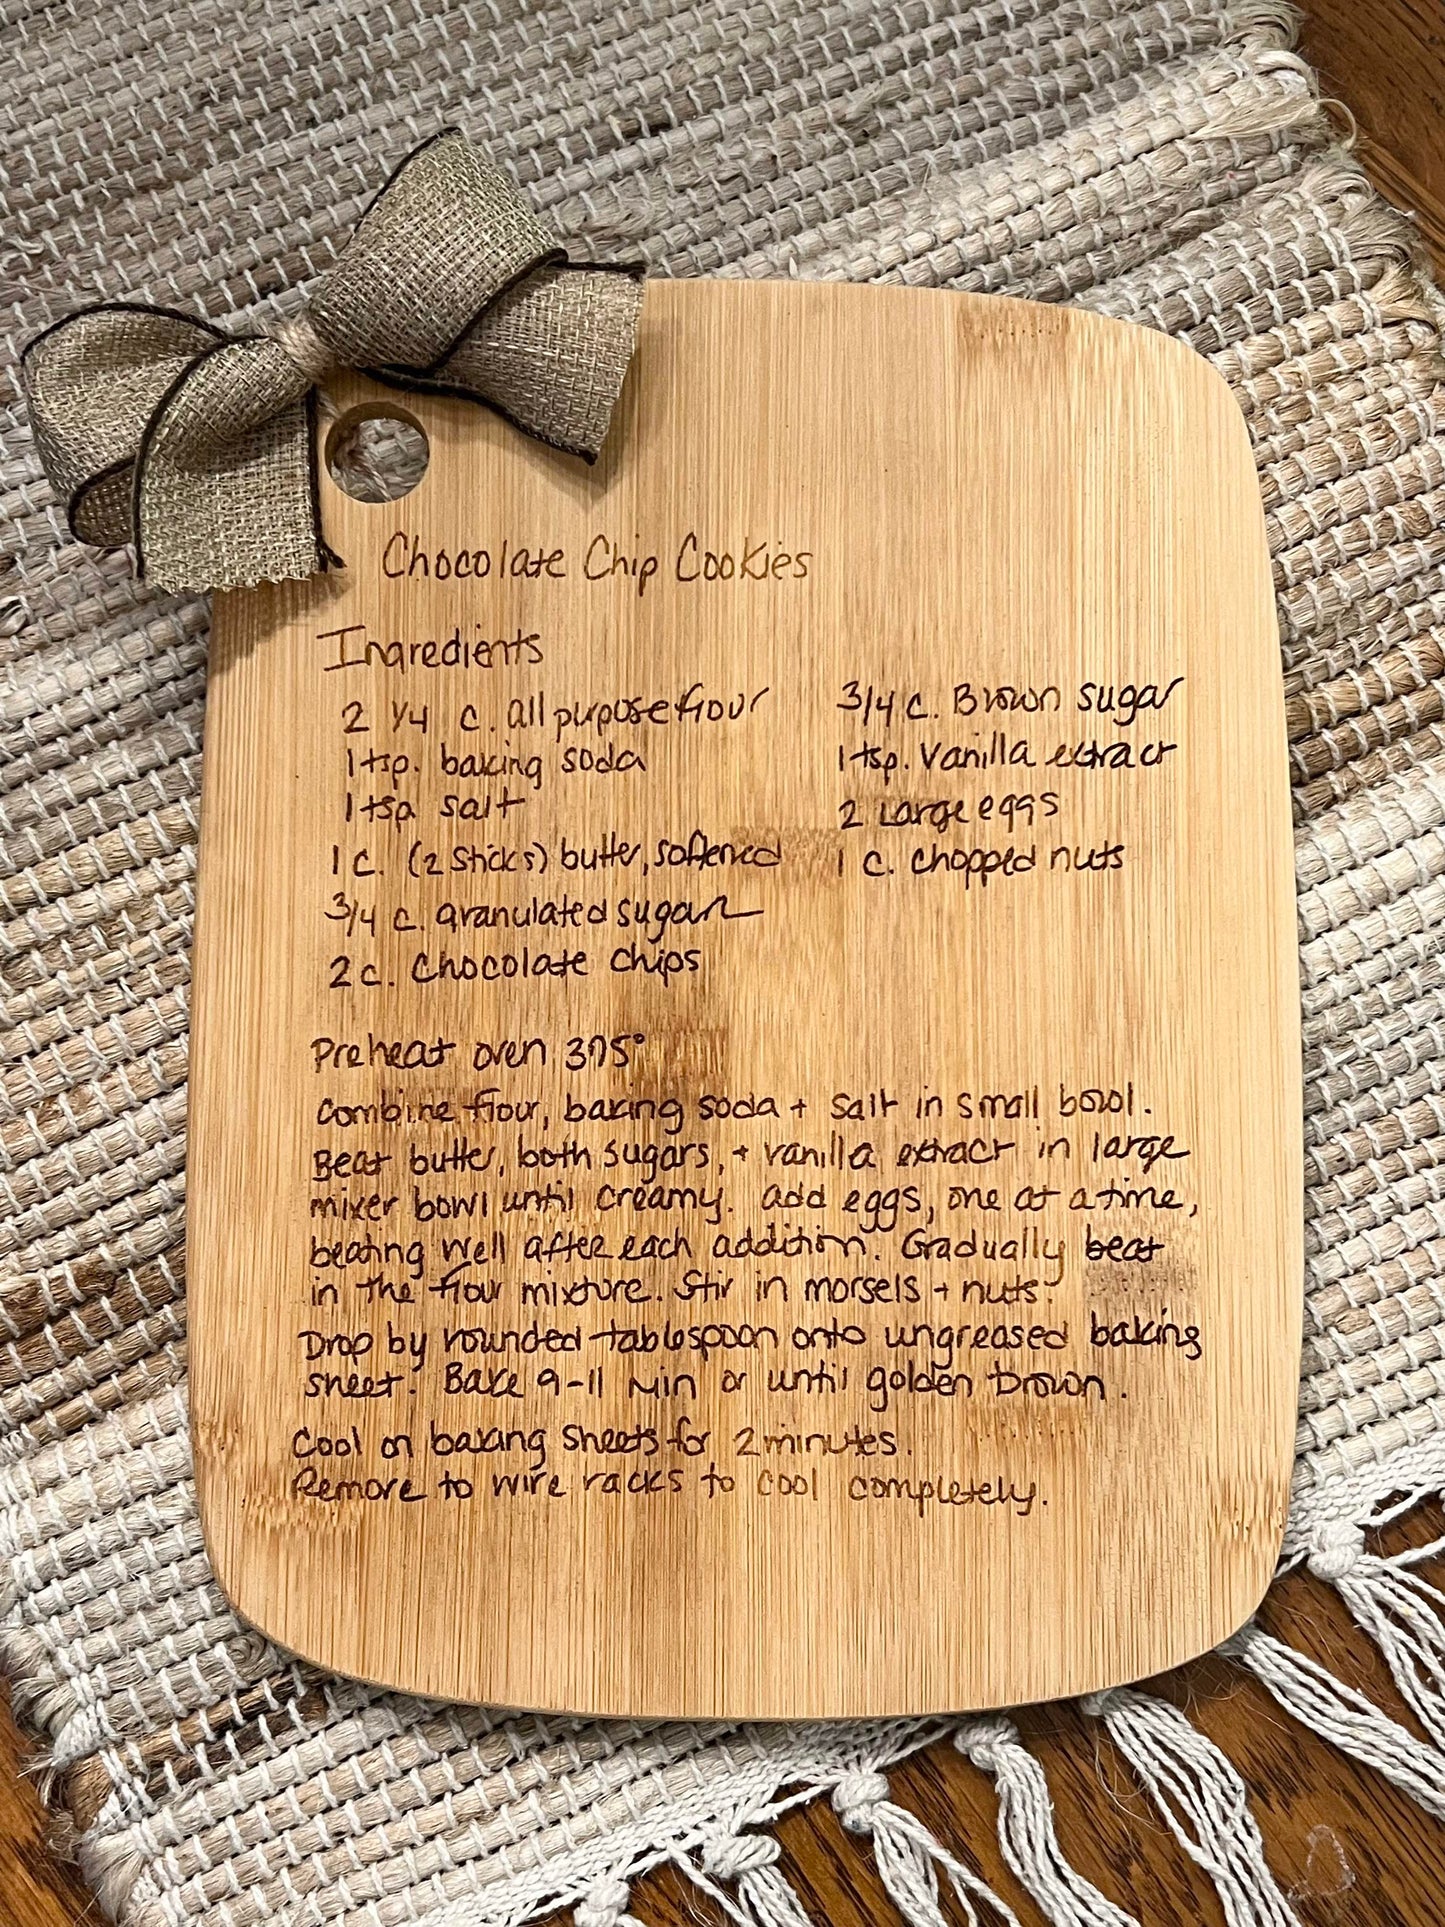 Chocolate Chip Cookies
Ingredients
2 1/4 c. all purpose flour
1 tsp. baking soda
1 tsp salt
1 c. (2 sticks) butter, softened
3/4 c. granulated sugar
2 c. chocolate chips
3/4 c. Brown sugar
1 tsp. Vanilla extract
2 Large eggs
1 c. chopped nuts
Preheat oven 375°
Combine flour, baking soda + salt in small bowl.
Beat butter, both sugars, + vanilla extract in large
mixer bowl until creamy. add eggs, one at a time,
beating well after each addition. Gradually beat
in the flour mixture. Stir in morsels + nuts.
Drop by rounded tablespoon onto ungreased baking
sheet. Bake 9-11 Min or until golden brown.
Cool on baking sheets for 2 minutes.
Remove to wire racks to cool completely.